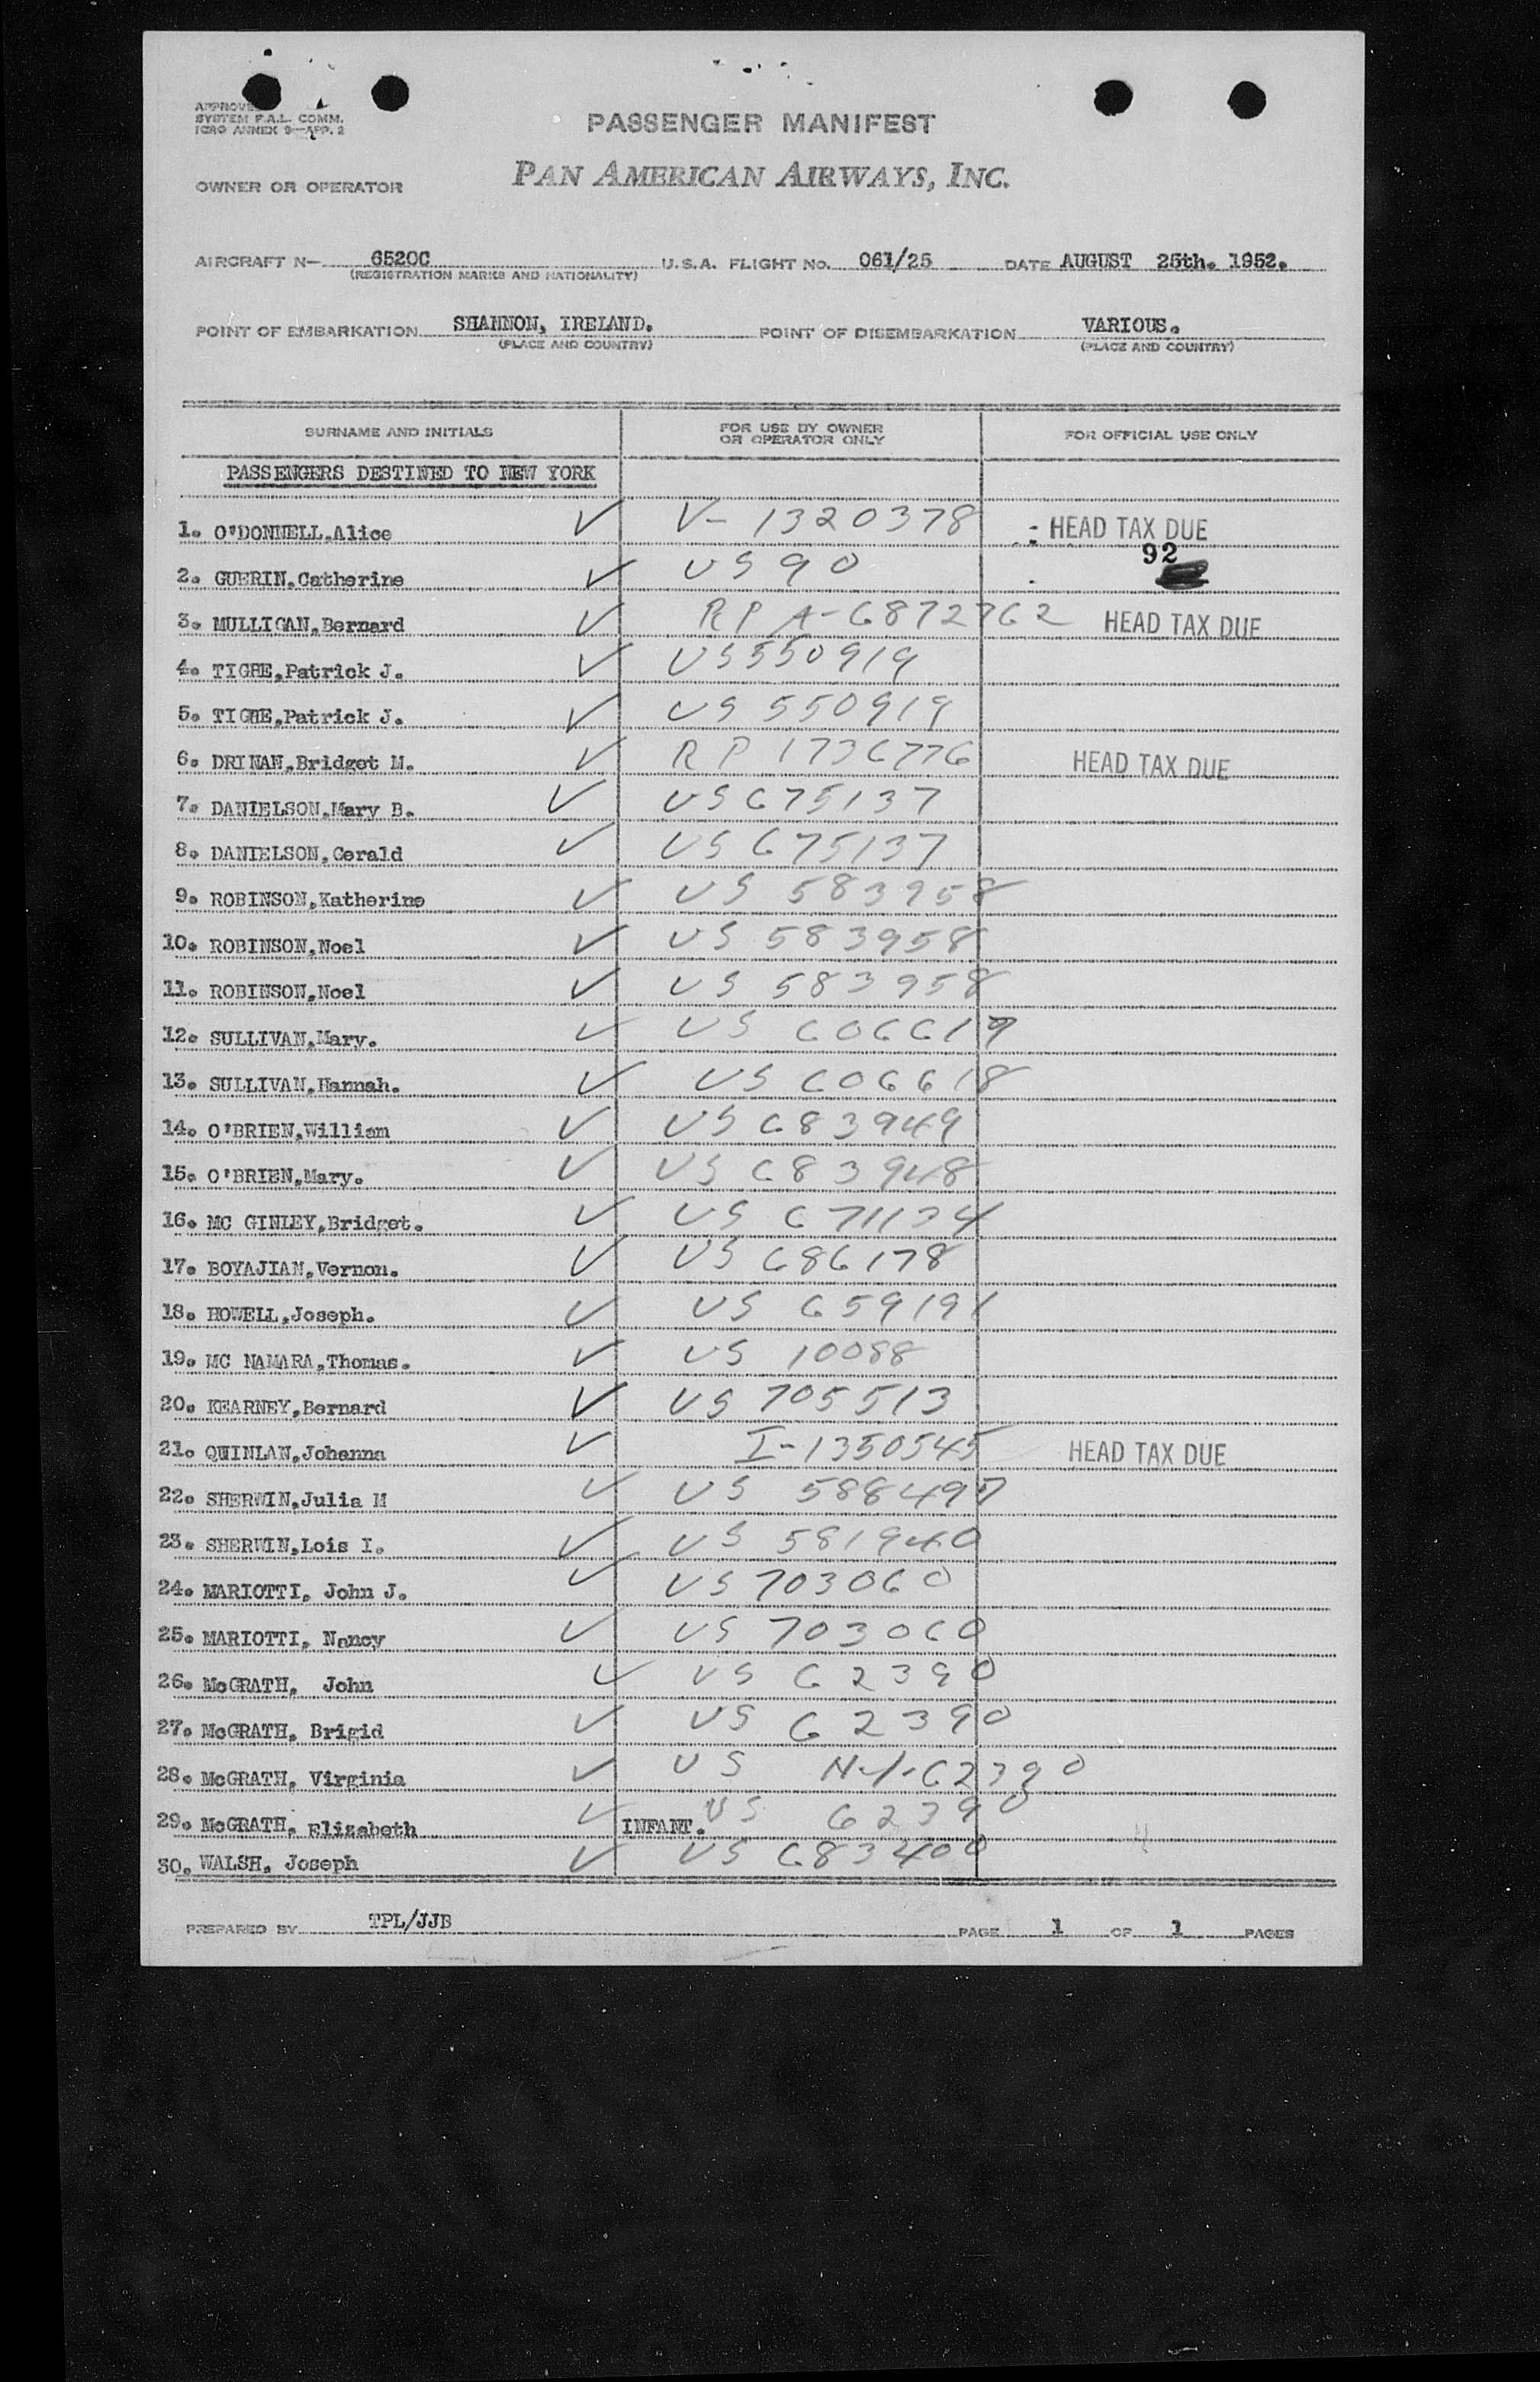 APPROVED
SYSTEM F.A.L. COMM.
ICAO ANNEX 9—APP. 2
PASSENGER MANIFEST
OWNER OR OPERATOR PAN AMERICAN AIRWAYS, INC.
AIRCRAFT N— 6520C U.S.A. FLIGHT NO. 061/25 DATE AUGUST 25th. 1952.
(REGISTRATION MARKS AND NATIONALITY)
POINT OF EMBARKATION SHANNON, IRELAND. POINT OF DISEMBARKATION VARIOUS.
(PLACE AND COUNTRY) (PLACE AND COUNTRY)
SURNAME AND INITIALS FOR USE BY OWNER OR OPERATOR ONLY FOR OFFICIAL USE ONLY
PASSENGERS DESTINED TO NEW YORK
1. O'DONNELL,Alice ✓ V- 1320378 HEAD TAX DUE
92
2. GUERIN,Catherine ✓ US 90
3. MULLIGAN,Bernard ✓ RP A-6872762 HEAD TAX DUE
4. TIGHE,Patrick J. ✓ US 550919
5. TIGHE,Patrick J. ✓ US 550919
6. DRINAN,Bridget M. ✓ RP 1736776 HEAD TAX DUE
7. DANIELSON,Mary B. ✓ US 675137
8. DANIELSON,Gerald ✓ US 675137
9. ROBINSON,Katherine ✓ US 583958
10. ROBINSON,Noel ✓ US 583958
11. ROBINSON,Noel ✓ US 583958
12. SULLIVAN,Mary. ✓ US 606619
13. SULLIVAN,Hannah. ✓ US 606618
14. O'BRIEN,William ✓ US 683949
15. O'BRIEN,Mary. ✓ US 683948
16. MC GINLEY,Bridget. ✓ US 671134
17. BOYAJIAN,Vernon. ✓ US 686178
18. HOWELL,Joseph. ✓ US 659191
19. MC NAMARA,Thomas. ✓ US 10088
20. KEARNEY,Bernard ✓ US 705513
21. QUINLAN,Johanna ✓ I-1350545 HEAD TAX DUE
22. SHERWIN,Julia M ✓ US 588497
23. SHERWIN,Lois I. ✓ US 581940
24. MARIOTTI, John J. ✓ US 703060
25. MARIOTTI, Nancy ✓ US 703060
26. McGRATH, John ✓ US 62390
27. McGRATH, Brigid ✓ US 62390
28. McGRATH, Virginia ✓ US 62390
29. McGRATH, Elizabeth ✓ INFANT. US 62390
30. WALSH, Joseph ✓ US 683400
PREPARED BY TPL/JJB PAGE 1 OF 1 PAGES